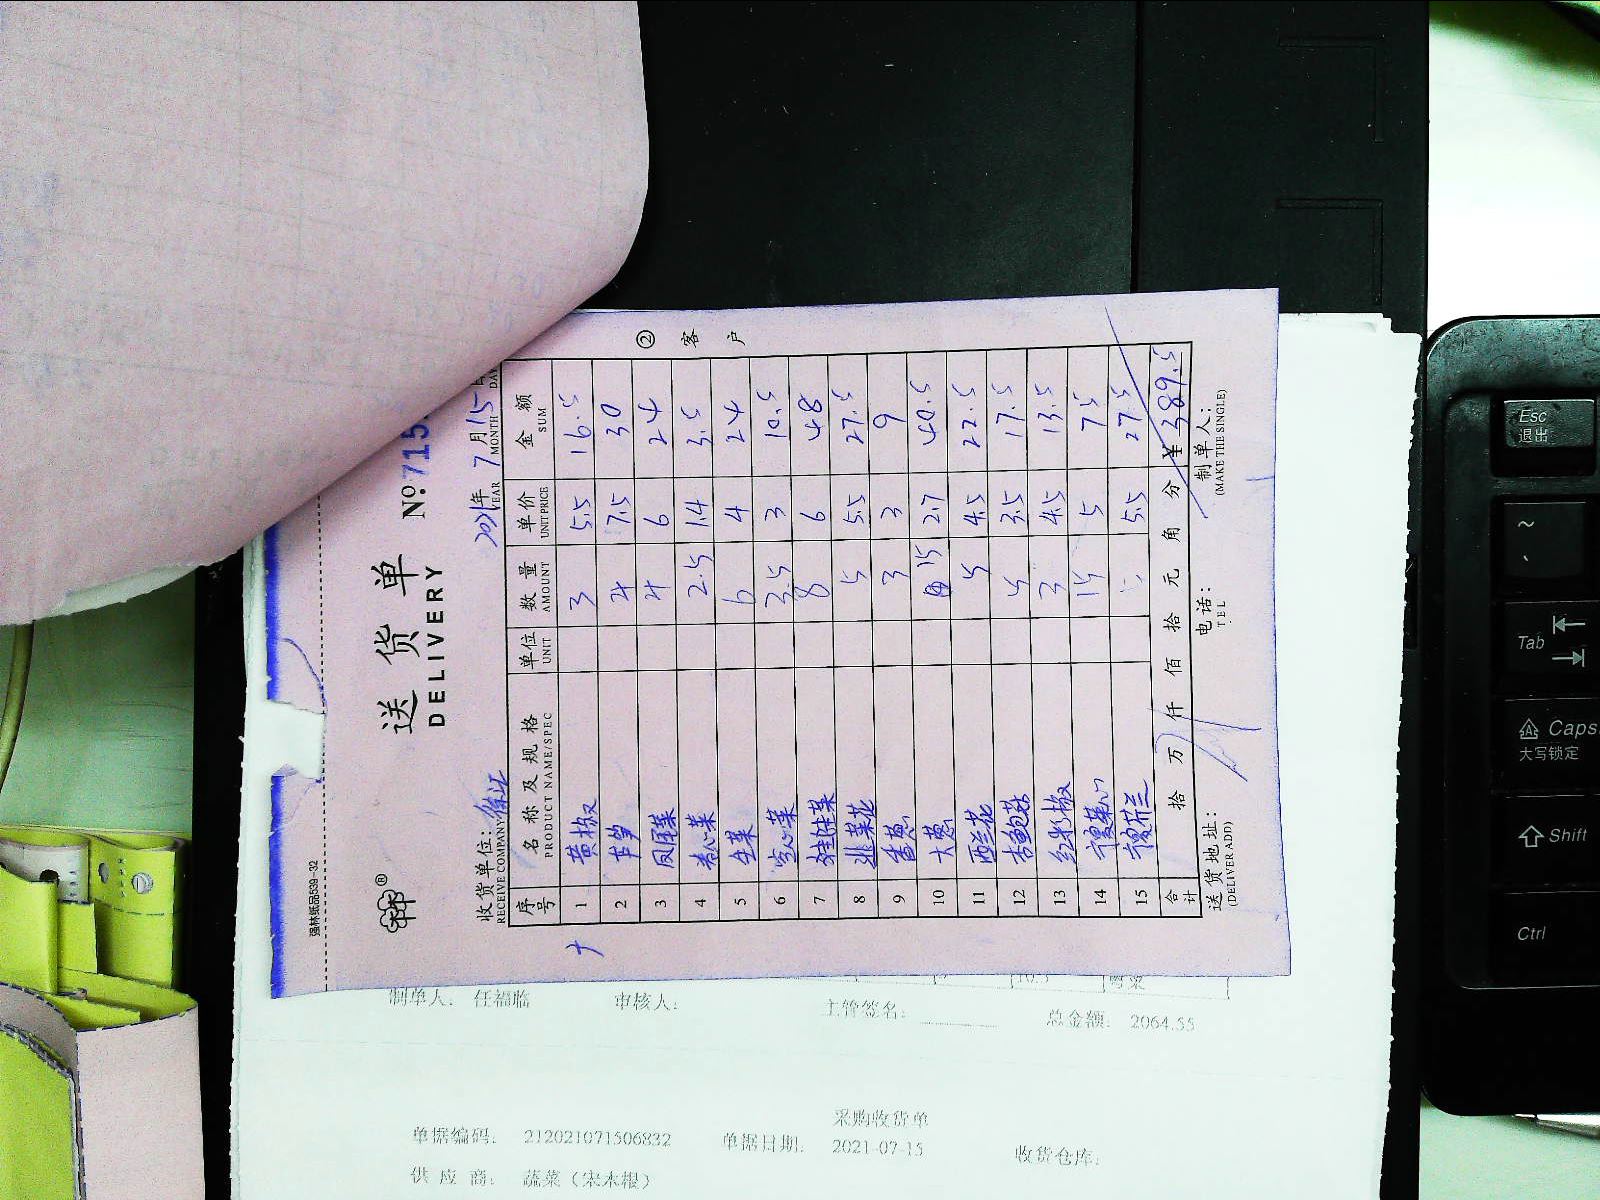 强林纸品539-32
送货单
DELIVERY
№ 715
收货单位: 徐江
RECEIVE COMPANY
2021年 7月 15
YEAR MONTH DAY
② 客户
序号 名称及规格 单位 数量 单价 金额
PRODUCT NAME/SPEC UNIT AMOUNT UNIT PRICE SUM
1 黄椒 3 5.5 16.5
2 芦笋 4 7.5 30
3 凤尾菜 4 6 24
4 卷心菜 2.5 1.4 3.5
5 生菜 6 4 24
6 空心菜 3.5 3 10.5
7 娃娃菜 8 6 48
8 韭菜花 5 5.5 27.5
9 香葱 3 3 9
10 大葱 15 2.7 40.5
11 西兰花 5 4.5 22.5
12 杏鲍菇 5 3.5 17.5
13 红彩椒 3 4.5 13.5
14 菜心 15 5 75
15 芥兰 5.5 27.5
合计 拾 万 仟 佰 拾 元 角 分 ¥ 389.5
送货地址: 电话: 制单人:
(DELIVER ADD) TEL (MAKE THE SINGLE)
制单人: 任福临 审核人: 主管签名: 总金额: 2064.55
采购收货单
单据编码: 212021071506832 单据日期: 2021-07-15 收货仓库:
供应商: 蔬菜（宋木根）
Esc
退出
~
Tab
Caps
大写锁定
Shift
Ctrl